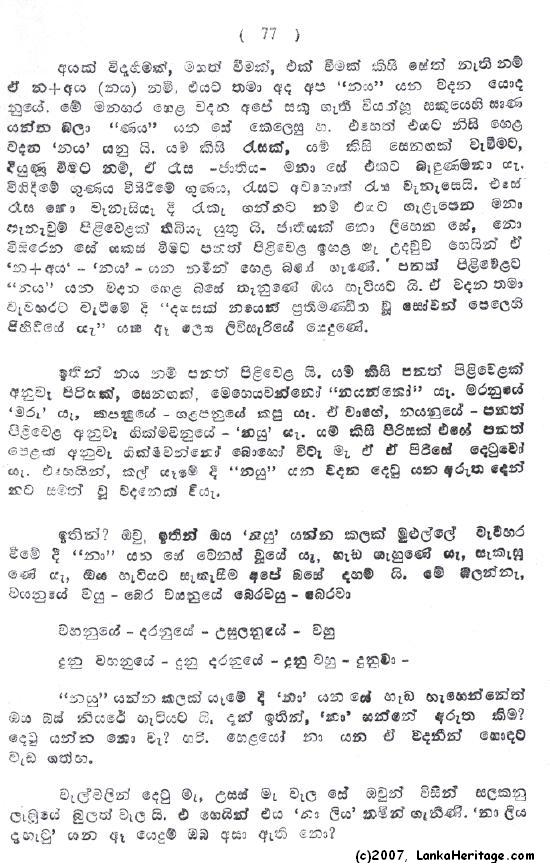 ( 77 )
අයක් විදුහමක්, මහත් වීමක්, එක් වීමක් කිසි සේත් නැති නම්
ඒ න+අය (නය) නම්, එයට තමා අද අප “නය” යන වදන යොද
නුයේ. මේ මනහර හෙළ වදන අපේ සකු ගැති වියත්හු සකුයෙහි
යන්න බලා “ණය” යන සේ කෙලෙසූ හ. එහෙත් එයට නිසි හෙළ
වදන ‘නය’ යනු යි. යම් කිසි රැසක්, යම් කිසි සෙනගක් වැඩීමට,
දියුණු වීමට නම්, ඒ රැස -ජාතිය- මනා සේ එකට බැඳුණමනා යැ.
විහිදීමේ ගුණය විසිරීමේ ගුණය, රැසට අවනොත් රැස වැනැසෙයි. එසේ
රැස නො වැනැසියැ දී රැකැ ගන්නට නම් එයට ගැළැපෙන මනා
පැනැවුම් පිළිවෙළක් තිබියැ යුතු යි. ජාතියක් නො ලිහෙන සේ, නො
විසිරෙන සේ සකස් වීමට පනත් පිළිවෙළ ඉගළ මැ උදව්වූ හෙයින් ඒ
‘න+අය’ - ‘නය’ - යන නමින් හෙළ බසේ ගැණේ. පනත් පිළිවෙළට
“නය” යන වදන හෙළ බසේ තැනුණේ ඔය හැටියට යි. ඒ වදන තමා
වැවහරට වැටීමේ දී “දශයක් නයෙන් ප්‍රතිමණ්ඩිත වූ සෝවන් පෙලෙහි
පිහිටියේ යැ” යන ඈ ලෙස ලිවිසැරියේ යෙදුණේ.
ඉතින් නය නම් පනත් පිළිවෙළ යි. යම් කිසි පනත් පිළිවෙළක්
අනුවැ පිරිසක්, සෙනගක්, මෙහෙයවන්නෝ “නයන්නෝ” යැ. මරනුයේ
‘මරු’ යැ, කපනුයේ - ගළපනුයේ කපු යැ. ඒ වාගේ, නයනුයේ - පනත්
පිළිවෙළ අනුවැ හික්මවනුයේ - ‘නයු’ යැ. යම් කිසි පිරිසක් එසේ පනත්
පෙළක් අනුවැ හික්මවන්නෝ බොහෝ විටැ මැ ඒ ඒ පිරිසේ දෙටුවෝ
යැ. එහෙයින්, කල් යෑමේ දී “නයු” යන වදන දෙටු යන අරුත දෙන්
නට සමත් වූ වදනෙක් වියැ.
ඉතින්? ඔව්, ඉතින් ඔය ‘නයු’ යන්න කලක් මුළුල්ලේ වැවහර
වීමේ දී “නා” යන සේ වෙනස් වූයේ යැ, හැඩ ගැහුණේ යැ, සැකැසු
ණේ යැ, ඔය හැටියට සැකැසීම අපේ බසේ දහම යි. මේ බලන්නැ,
වයනුයේ වයු - බෙර වයනුයේ බෙරවයු - බෙරවා
වහනුයේ - දරනුයේ - උසුලනුයේ - වහු
දුනු වහනුයේ - දුනු දරනුයේ - දුනු වහු - දුනුවා -
“නයු” යන්න කලක් යැමේ දී ‘නා’ යන සේ හැඩ ගැහෙන්නේත්
ඔය බස් නියරේ හැටියට යි. දැන් ඉතින්, ‘නා’ යන්නේ අරුත කිම?
දෙටු යන්න නො වැ? හරි. හෙළයෝ නා යන ඒ වදනින් හොඳට
වැඩ ගත්හ.
වැල්වලින් දෙටු මැ, උසස් මැ වැල සේ ඔවුන් විසින් සලකනු
ලැබුයේ බුලත් වැල යි. එ හෙයින් එය ‘නා ලිය’ නමින් ගැනිණි. ‘නා ලිය
දැහැටු’ යන ඈ යෙදුම් ඔබ අසා ඇති නො?
(c)2007, LankaHeritage.com